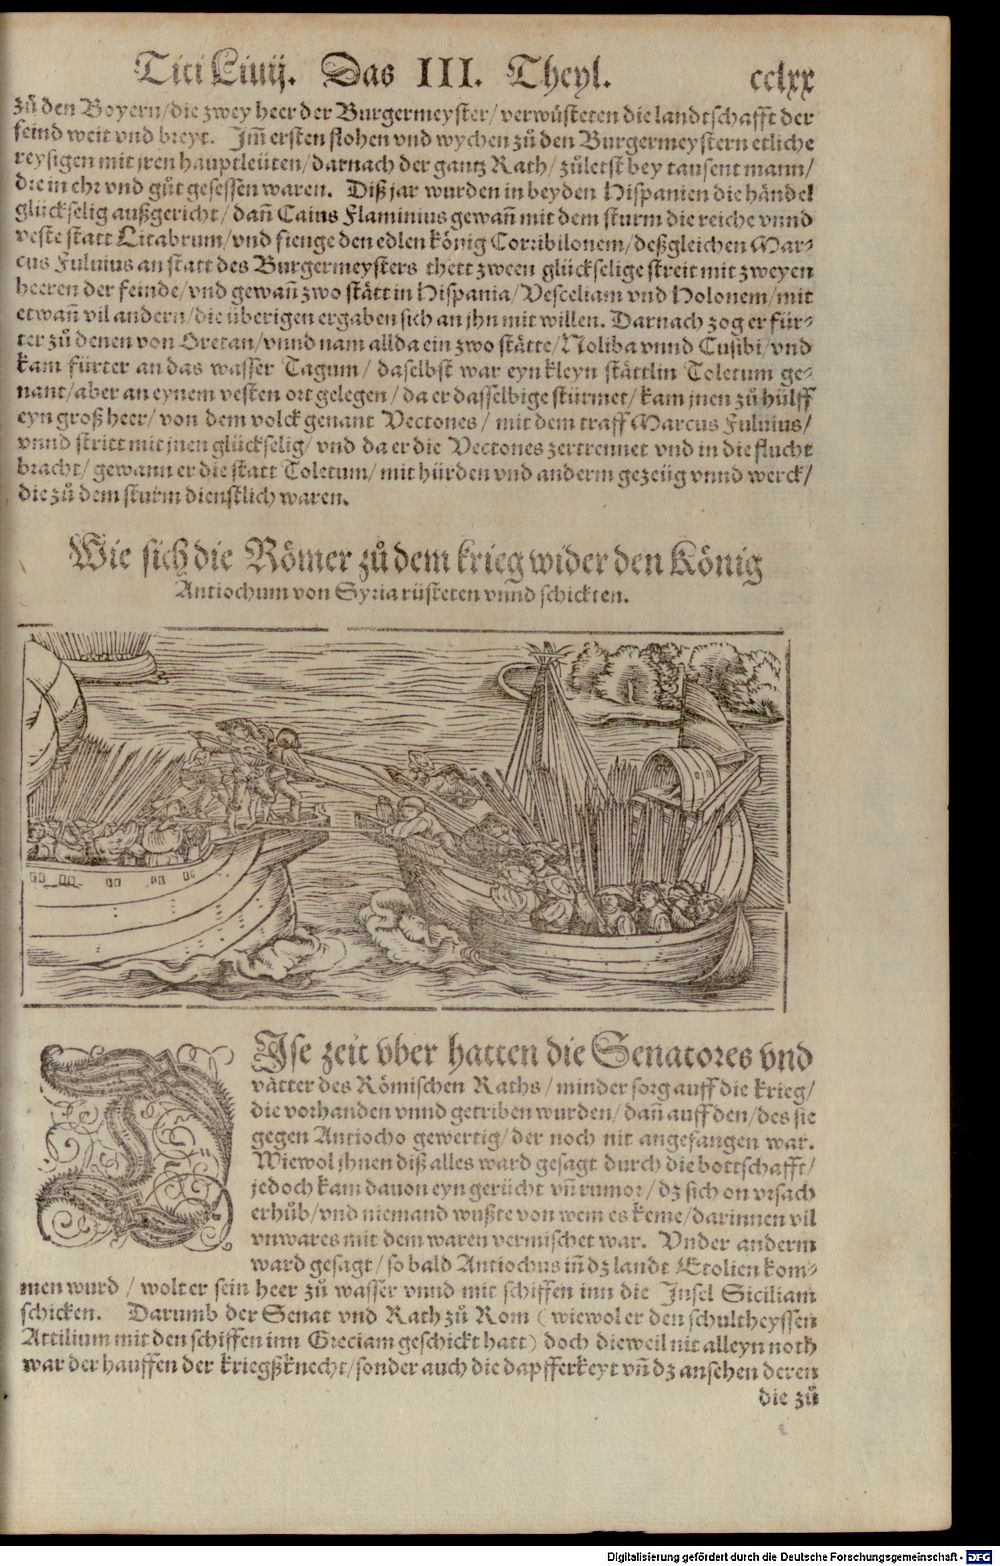 Titi Liuij. Das III. Theyl. cclxx
zů den Boyern/die zwey heer der Burgermeyster/verwüsteten die landtschafft der
feind weit vnd breyt. Im̃ ersten flohen vnd wychen zů den Burgermeystern etliche
reysigen mit jren hauptleüten/darnach der gantz Rath/zůletst bey tausent mann/
die in ehr vnd gůt gesessen waren. Diß jar wurden in beyden Hispanien die håndel
glückselig außgericht/dañ Caius Flaminius gewañ mit dem sturm die reiche vnnd
veste statt Litabrum/vnd fienge den edlen König Corribilonem/deßgleichen Mar-
cus Fuluius an statt des Burgermeysters thett zween glückselige streit mit zweyen
heeren der feinde/vnd gewañ zwo stått in Hispania/Vesceliam vnd Holonem/mit
etwañ vil andern/die überigen ergaben sich an jhn mit willen. Darnach zog er für-
ter zů denen von Oretan/vnnd nam allda ein zwo stätte/Noliba vnnd Cusibi/vnd
kam fürter an das wasser Tagum/ daselbst war eyn kleyn ståttlin Toletum ge-
nant/aber an eynem vesten ort gelegen/da er dasselbige stürmet/kam jnen zů hülff
eyn groß heer/von dem volck genant Vectones/ mit dem traff Marcus Fuluius/
vnnd stritt mit jnen glückselig/ vnd da er die Vectones zertrennet vnd in die flucht
bracht/gewann er die statt Toletum/mit hürden vnd anderm gezeüg vnnd werck/
die zů dem sturm dienstlich waren.
Wie sich die Römer zů dem krieg wider den König
Antiochum von Syria rüsteten vnnd schickten.
DIse zeit vber hatten die Senatores vnd
våtter des Römischen Raths/minder sorg auff die krieg/
die vorhanden vnnd getriben wurden/dañ auff den/des sie
gegen Antiocho gewertig/der noch nit angefangen war.
Wiewol jhnen diß alles ward gesagt durch die bottschafft/
jedoch kam dauon eyn gerücht vñ rumor/dz sich on vrsach
erhůb/vnd niemand wußte von wem es keme/darinnen vil
vnwares mit dem waren vermischet war. Vnder anderm
ward gesagt/so bald Antiochus iñ dz landt Etolien kom-
men wurd/wolt er sein heer zů wasser vnnd mit schiffen inn die Insel Siciliam
schicken. Darumb der Senat vnd Rath zů Rom (wiewol er den schultheyssen
Attilium mit den schiffen inn Greciam geschickt hatt) doch dieweil nit alleyn noth
war der hauffen der kriegßknecht/sonder auch die dapfferkeyt vñ dz ansehen deren
die zů
Digitalisierung gefördert durch die Deutsche Forschungsgemeinschaft - DFG